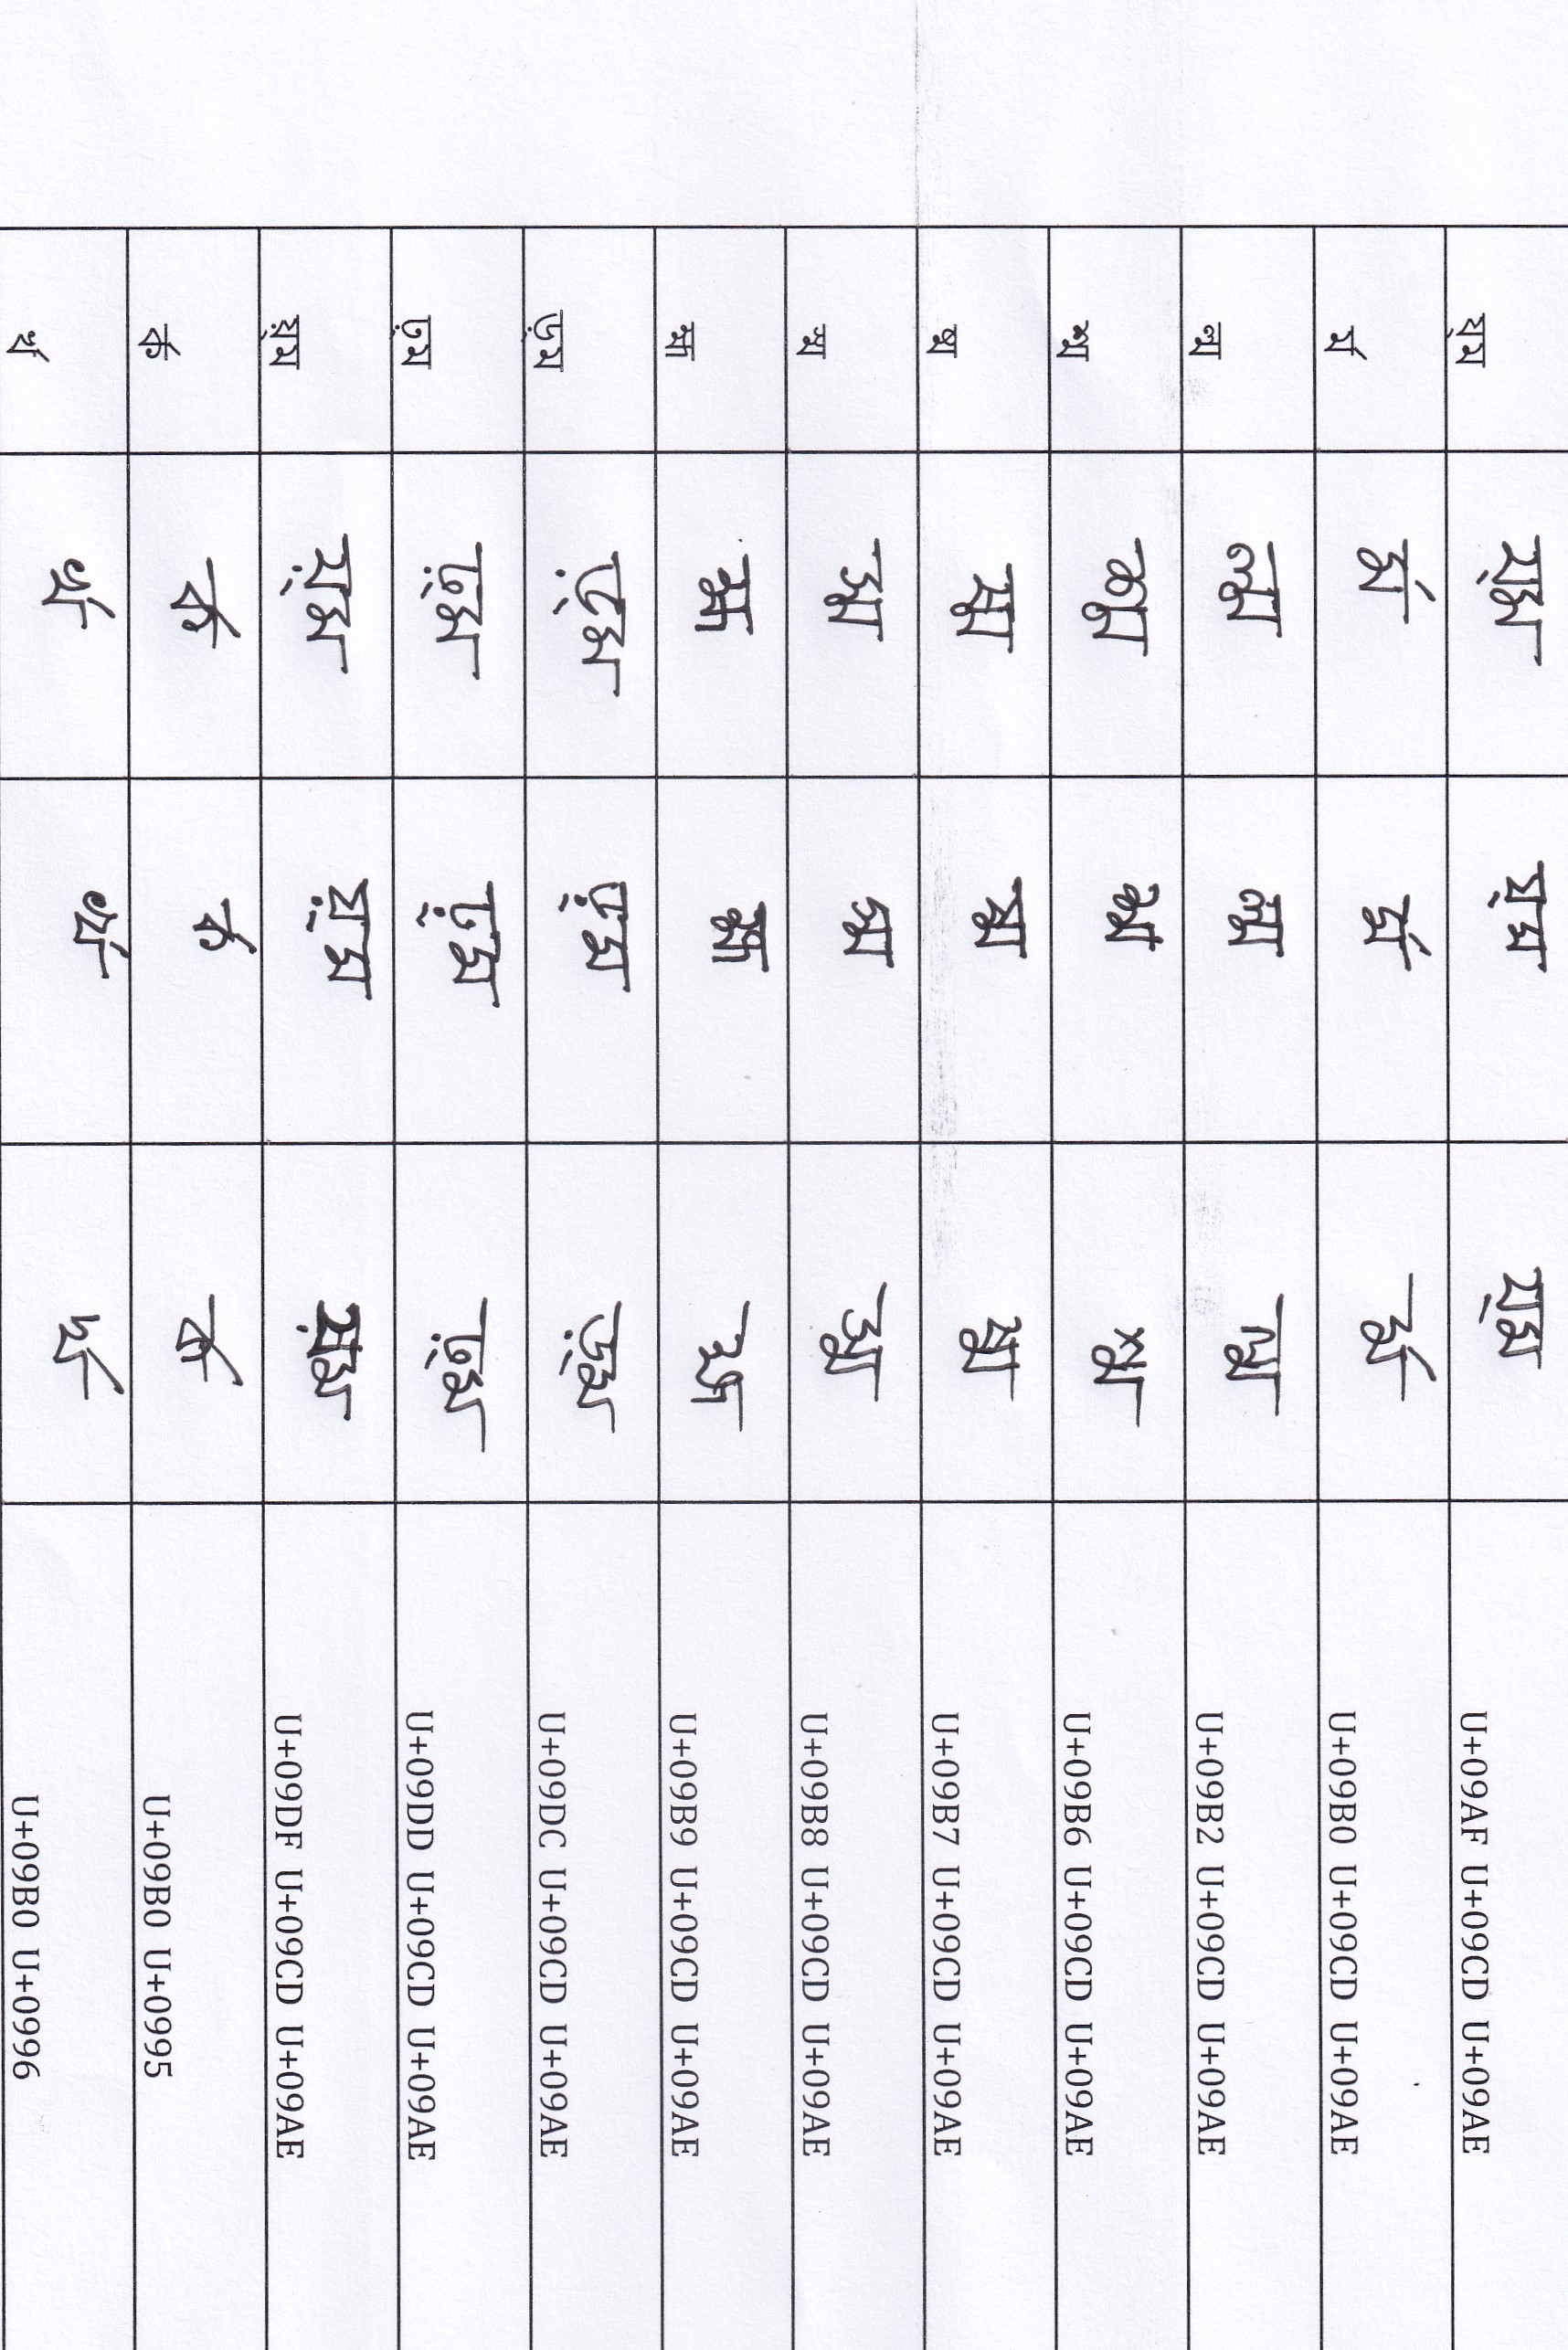 য্ম য্ম য্ম য্ম U+09AF U+09CD U+09AE
র্ম র্ম র্ম র্ম U+09B0 U+09CD U+09AE
ল্ম ল্ম ল্ম ল্ম U+09B2 U+09CD U+09AE
শ্ম শ্ম শ্ম শ্ম U+09B6 U+09CD U+09AE
ষ্ম ষ্ম ষ্ম ষ্ম U+09B7 U+09CD U+09AE
স্ম স্ম স্ম স্ম U+09B8 U+09CD U+09AE
হ্ম হ্ম হ্ম হ্ম U+09B9 U+09CD U+09AE
ড়্ম ড়্ম ড়্ম ড়্ম U+09DC U+09CD U+09AE
ঢ়্ম ঢ়্ম ঢ়্ম ঢ়্ম U+09DD U+09CD U+09AE
য়্ম য়্ম য়্ম য়্ম U+09DF U+09CD U+09AE
র্ক র্ক র্ক র্ক U+09B0 U+0995
র্খ র্খ র্খ র্খ U+09B0 U+0996